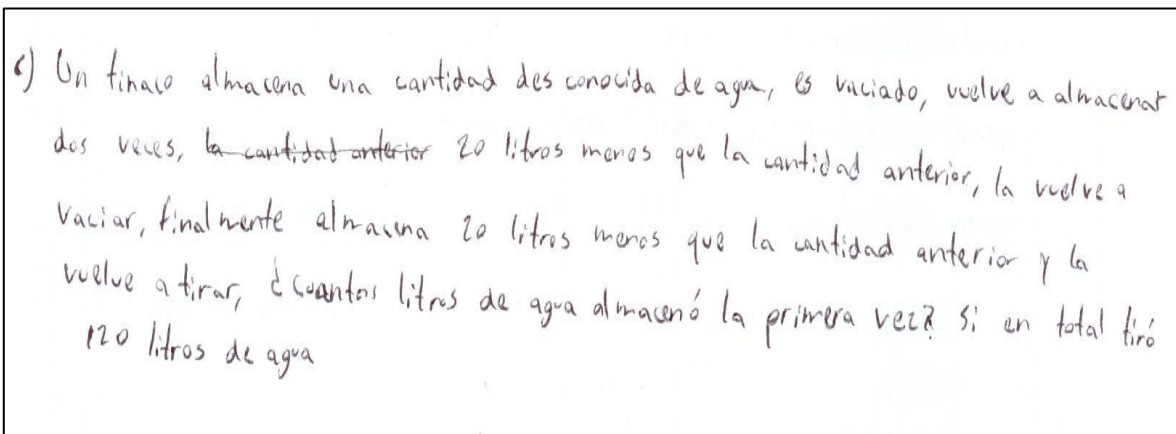 c) Un tinaco almacena una cantidad des conocida de agua, es vaciado, vuelve a almacenar
dos veces, la cantidad anterior 20 litros menos que la cantidad anterior, la vuelve a
vaciar, finalmente almacena 20 litros menos que la cantidad anterior y la
vuelve a tirar, ¿cuantos litros de agua almacenó la primera vez? Si en total tiró
120 litros de agua